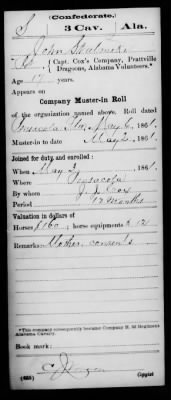 (Confederate.)
S 3 Cav. Ala.
John
Pvt (Capt. Cox's Company, Prattville
Dragoons, Alabama Volunteers.*
Age 17 years.
Appears on
Company Muster-in Roll
of the organization named above. Roll dated
Pensacola, Fla. May 6, 1861.
Muster-in to date May 2, 1861.
Joined for duty and enrolled:
When May 2, 1861.
Where Pensacola
By whom J. J. Cox
Period 12 months
Valuation in dollars of
Horses $160 : horse equipments $12
Remarks: Mother consents
*This company subsequently became Company H, 3d Regiment
Alabama Cavalry.
Book mark:
(635) Copyist.